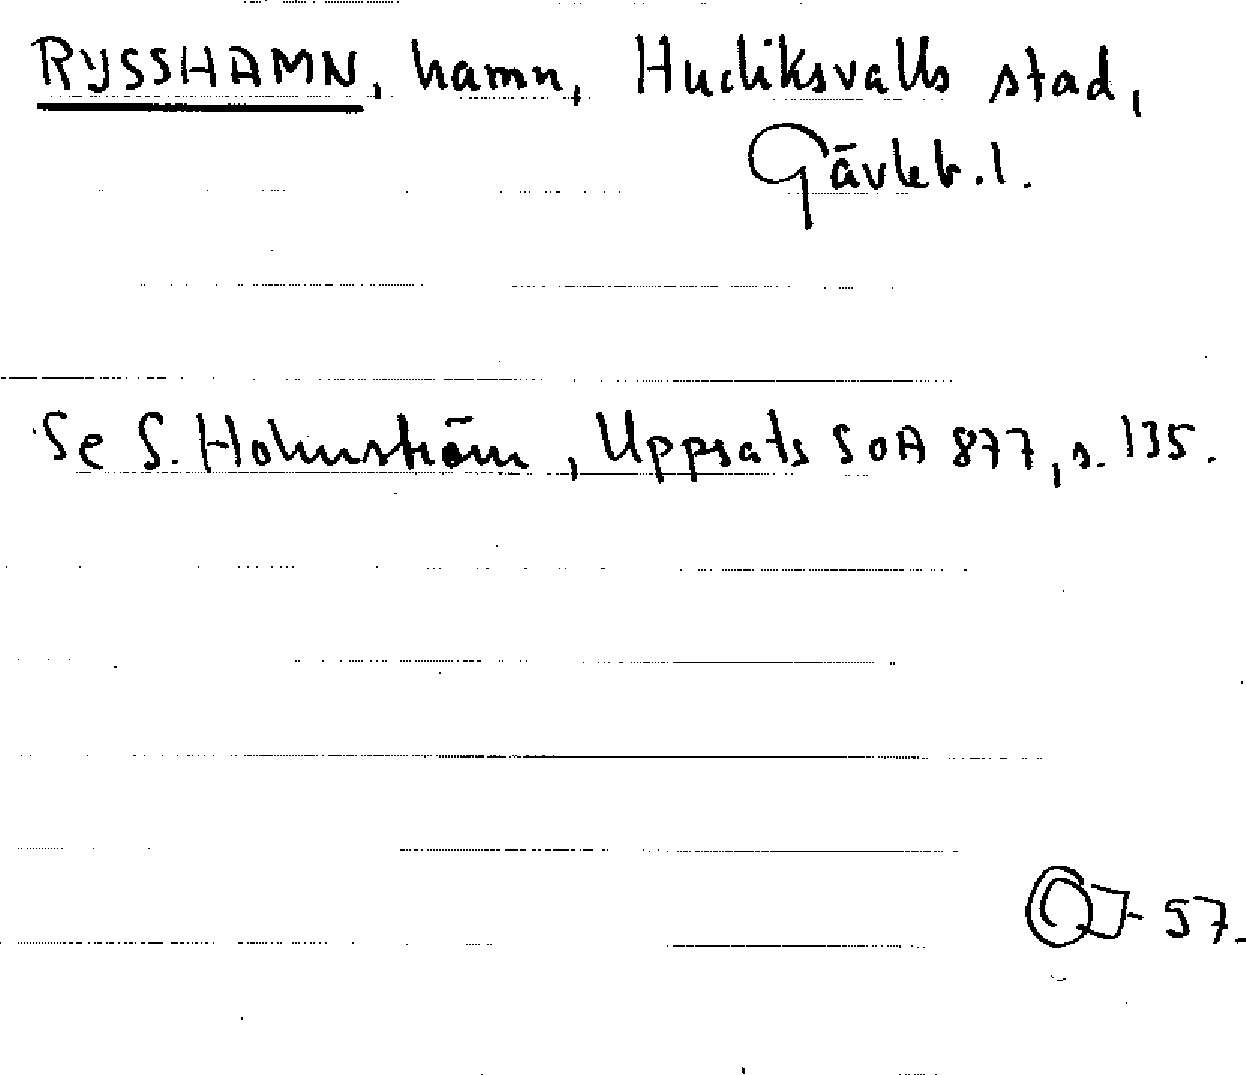 RYSSHAMN, hamn, Hudiksvalls stad,
Gävleb. l.
Se S. Holmström, Uppsats SOA 877, s. 135.
57.